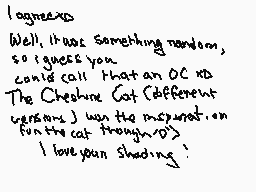 I agree xD
Well, it was something random,
so i guess you
could call that an OC xD
The Cheshire Cat (different
versions) was the inspiration
for the cat though :'D
I love your shading!